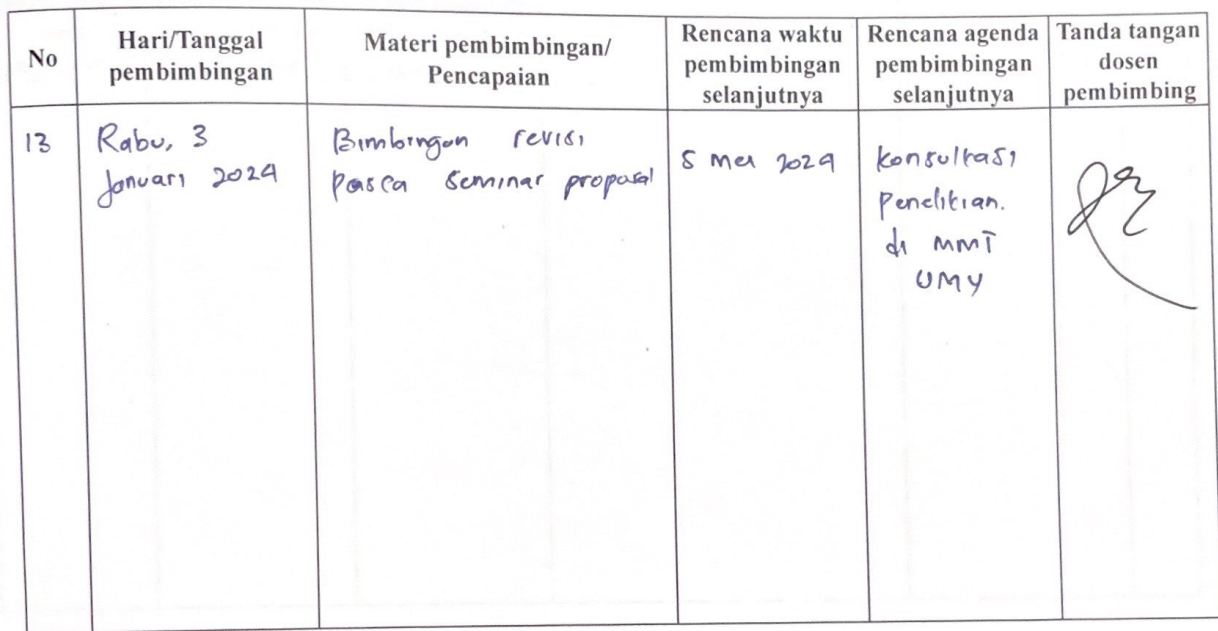 No
Hari/Tanggal
pembimbingan
Materi pembimbingan/
Pencapaian
Rencana waktu
pembimbingan
selanjutnya
Rencana agenda
pembimbingan
selanjutnya
Tanda tangan
dosen
pembimbing
13
Rabu, 3
Januari 2024
Bimbingan revisi
Pasca seminar proposal
5 Mei 2024
Konsultasi
Penelitian.
di MMT
UMY